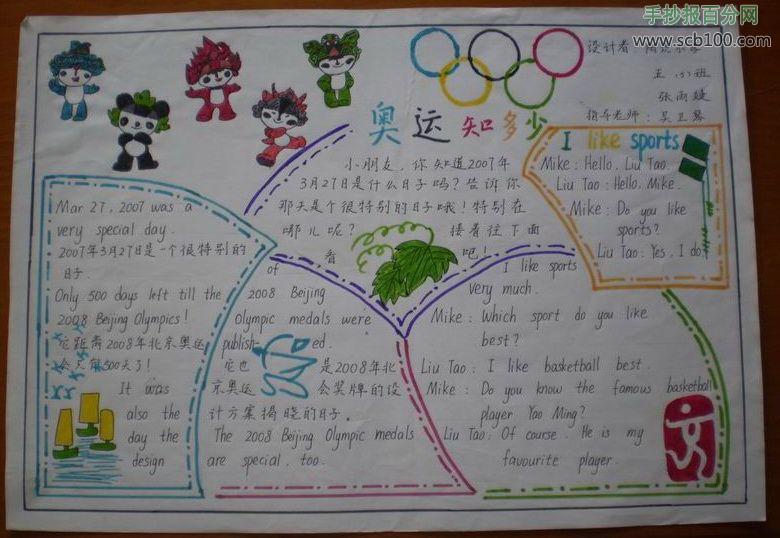 手抄报百分网
www.scb100.com
设计者
五 (5) 班
张雨婕
指导老师:
奥运知多少
小朋友,你知道2007年
3月27日是什么日子吗?告诉你
那天是个很特别的日子哦!特别在
哪儿呢? 接着往下面
看 吧!
Mar 27, 2007 was a
very special day.
2007年3月27日是一个很特别的
日子.
Only 500 days left till the
2008 Beijing Olympics!
它距离2008年北京奥运
会只有500天了!
It was
also the
day the
design
of
2008 Beijing
Olympic medals were
published.
它也是2008年北
京奥运会奖牌的设
计方案揭晓的日子.
The 2008 Beijing Olympic medals
are special, too.
I like sports
Mike: Hello, Liu Tao.
Liu Tao: Hello, Mike.
Mike: Do you like
sports?
Liu Tao: Yes, I do.
I like sports
very much.
Mike: Which sport do you like
best?
Liu Tao: I like basketball best.
Mike: Do you know the famous basketball
player Yao Ming?
Liu Tao: Of course. He is my
favourite player.